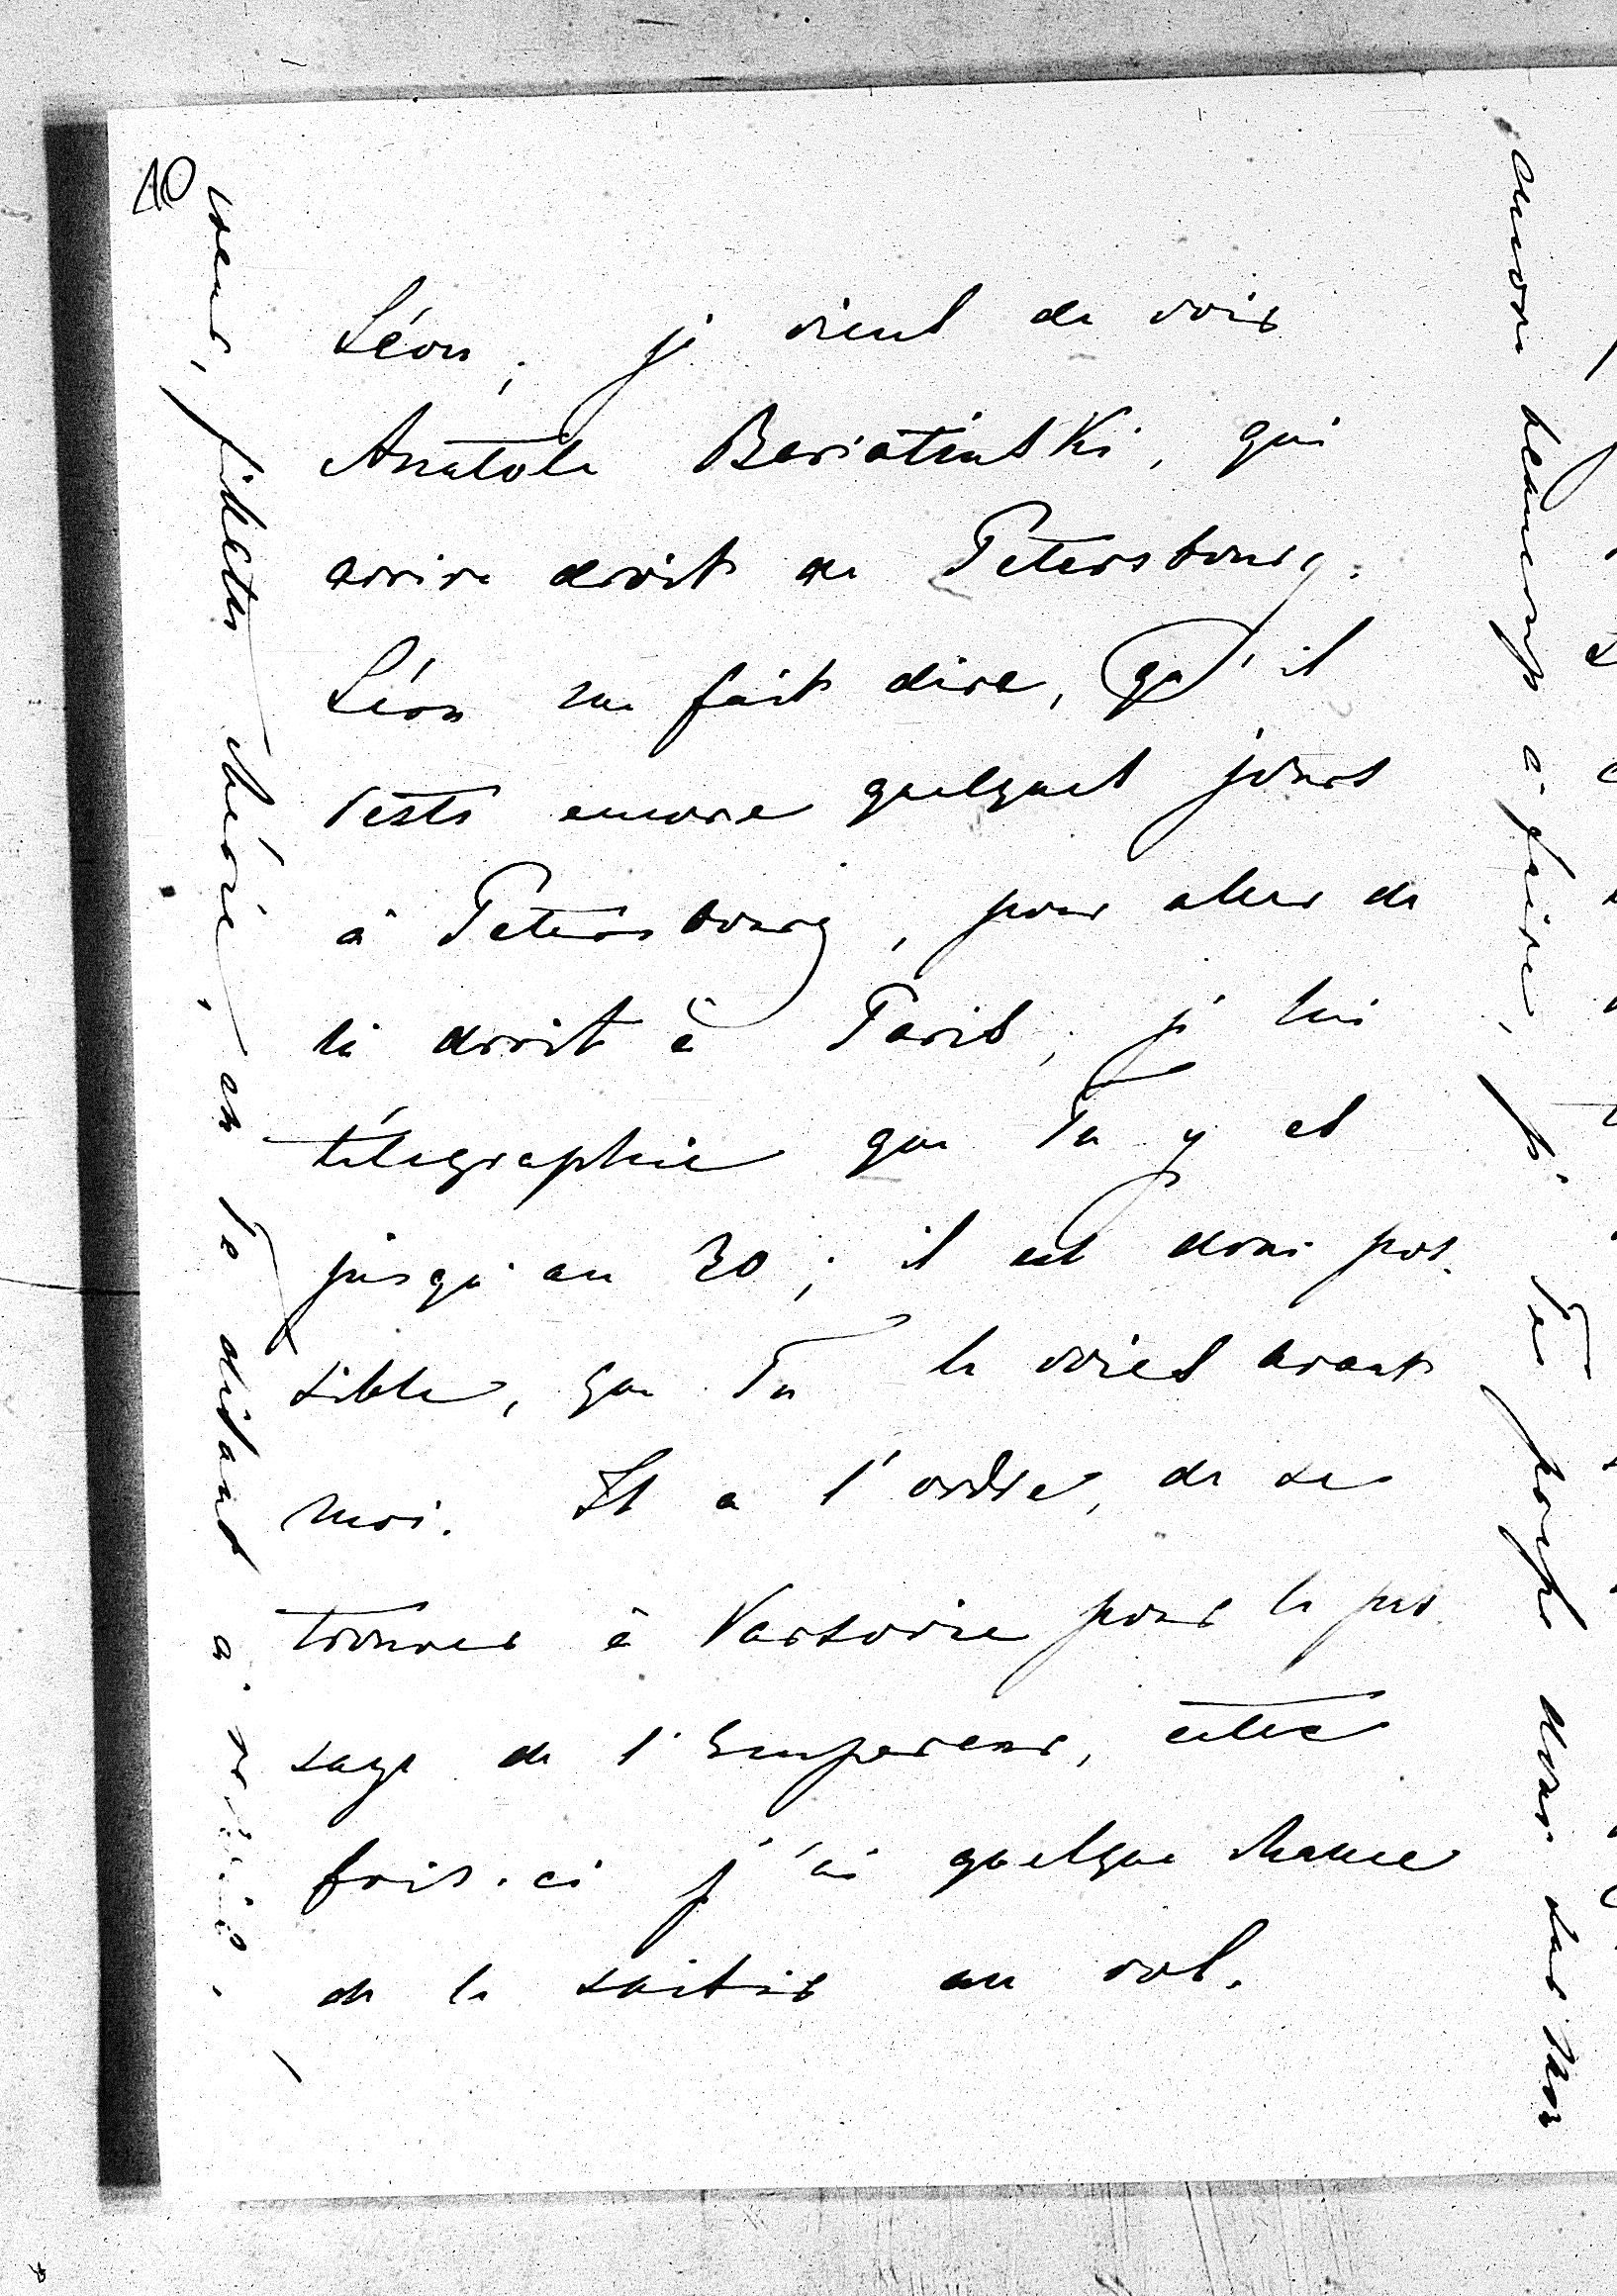 10
Léon; je viens de voir
Anatole Bariatinski, qui
arrive droit de Petersbourg.
Léon me fait dire, qu'il
reste encore quelques jours
à Petersbourg, pour aller de
là droit à Paris; je lui
télégraphie que Tu y es
jusqu'au 30; il est donc pos-
sible, que Tu le voies avant
moi. Il a l'ordre, de se
trouver à Varsovie pour le pas-
sage de l'Empereur, cette
fois-ci j'ai quelque chance
de le saisir au vol.
encore beaucoup à faire, je Te porte dans mon
cœur, fillette chérie, en Te disant à